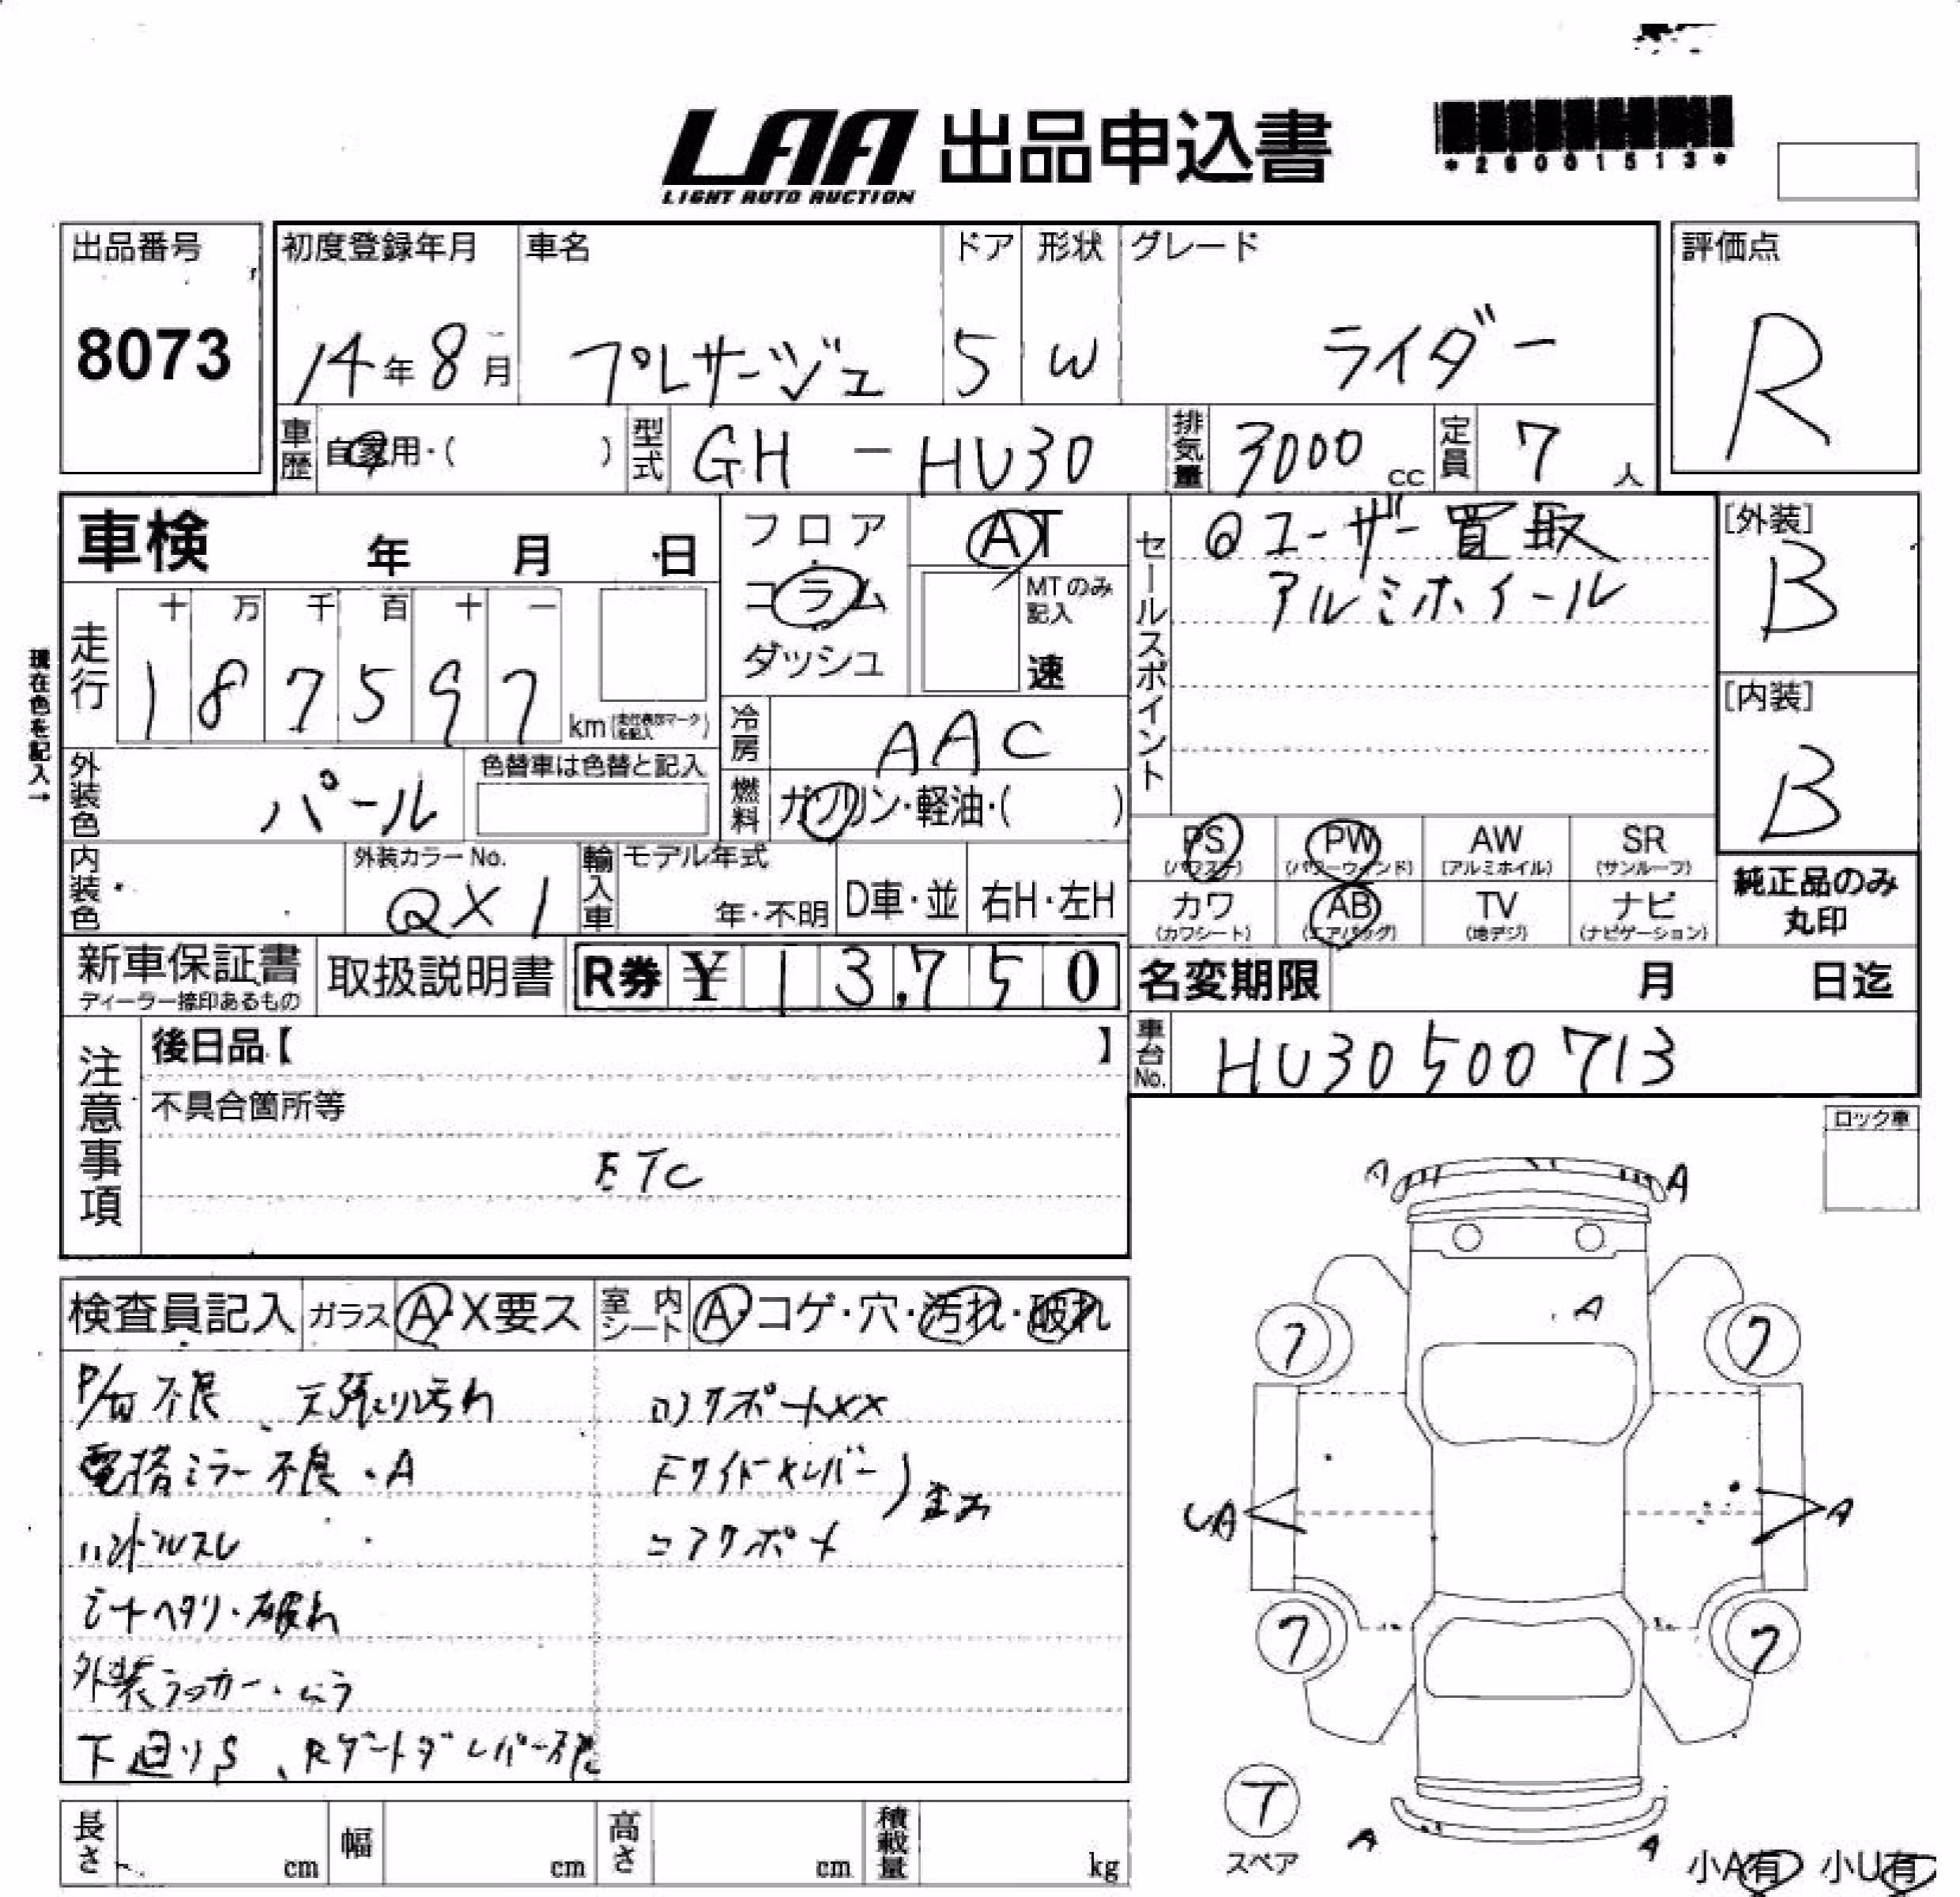 LAA 出品申込書
LIGHT AUTO AUCTION
*26001513*
出品番号
8073
初度登録年月 車名 ドア 形状 グレード
14年8月 プレサージュ 5 W ライダー
評価点
R
車歴 自家用・( ) 型式 GH-HU30 排気量 3000cc 定員 7人
車検 年 月 日
フロア
コラム
ダッシュ
AT
MTのみ記入
速
セールスポイント
@ユーザー買取
アルミホイール
[外装]
B
[内装]
B
現在色を記入→
走行 十 万 千 百 十 一
187597 km
冷房 AAC
外装色 パール 色替車は色替と記入
燃料 ガソリン・軽油・( )
内装色 外装カラーNo. QX1
輸入車 モデル年式 年・不明 D車・並 右H・左H
PS PW AW SR
(パワステ) (パワーウィンド) (アルミホイル) (サンルーフ)
カワ AB TV ナビ
(カワシート) (エアバッグ) (地デジ) (ナビゲーション)
純正品のみ
丸印
新車保証書
ディーラー捺印あるもの
取扱説明書 R券 ¥ 13,750
名変期限 月 日迄
車台No. HU30500713
注意事項
後日品【 】
不具合箇所等
ETC
ロック車
検査員記入 ガラス A・X要ス 室内シート A・コゲ・穴・汚れ・破れ
P/W不良、天張り汚れ
電格ミラー不良・A
ハンドルスレ
シートヘタリ・破れ
外装ラッカー・ムラ
下廻りS、Rゲートダンパー不良
コアサポートXX
Fサイドメンバー
コアサポート
A A
A
7 7
UA A
7 7
T
スペア
A A
小A有 小U有
長さ cm 幅 cm 高さ cm 積載量 kg